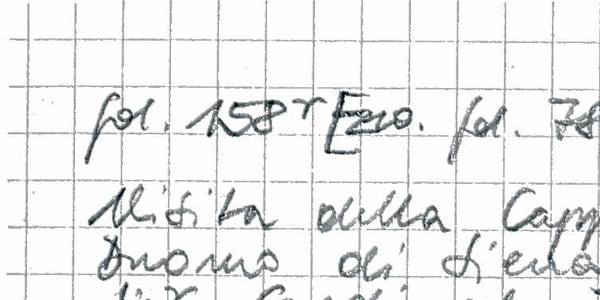 fol. 158r [Ezo. fol. 78
Visita della Capp
Duomo di Siena